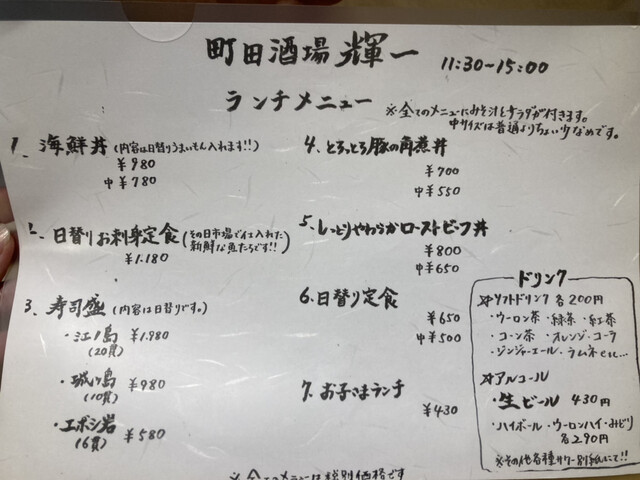 町田酒場 輝一 11:30-15:00
ランチメニュー
※全てのメニューにみそ汁とサラダが付きます。
中サイズは普通よりちょい少なめです。
1. 海鮮丼 (内容は日替りうまいもん入れます!!)
¥980
中¥780
2. 日替りお刺身定食 (その日市場で仕入れた
新鮮な魚たちです!!)
¥1.180
3. 寿司盛 (内容は日替りです。)
・江ノ島 ¥1.980
(20貫)
・城ヶ島 ¥980
(10貫)
・エボシ岩 ¥580
(6貫)
4. とろっとろ豚の角煮丼
¥700
中¥550
5. しっとりやわらかローストビーフ丼
¥800
中¥650
6. 日替り定食
¥650
中¥500
7. お子さまランチ
¥430
ドリンク
☆ソフトドリンク 各200円
・ウーロン茶 ・緑茶 ・紅茶
・コーン茶 ・オレンジ・コーラ
・ジンジャーエール・ラムネ etc...
☆アルコール
・生ビール 430円
・ハイボール・ウーロンハイ・みどり
各290円
※その他各種サワー別紙にて!!
※全てのメニューは税別価格です